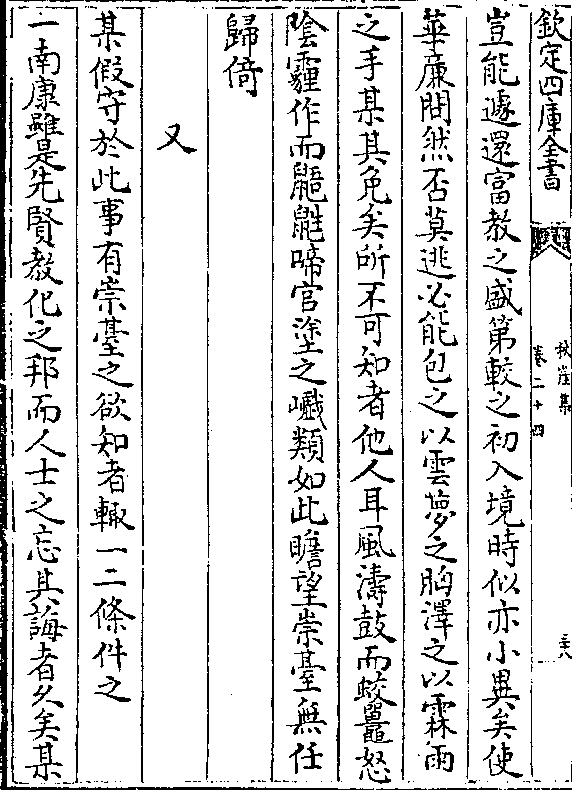 欽定四庫全書
秋崖集
卷二十四
三八
豈能遽還富教之盛第較之初入境時似亦小異矣使
華廉問然否莫逃必能包之以雲夢之胸澤之以霖雨
之手某其免矣所不可知者他人耳風濤鼓而蛟鼉怒
陰霾作而鼯鼪啼官塗之巇類如此瞻望崇臺無任
歸倚
又
某假守於此事有崇臺之欲知者輙一二條件之
一南康雖是先賢教化之邦而人士之忘其誨者久矣某